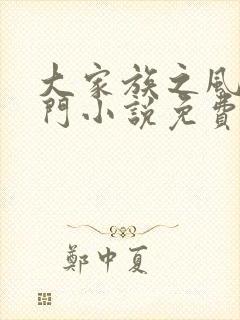 大家族之風
門小說免費
鄭中夏